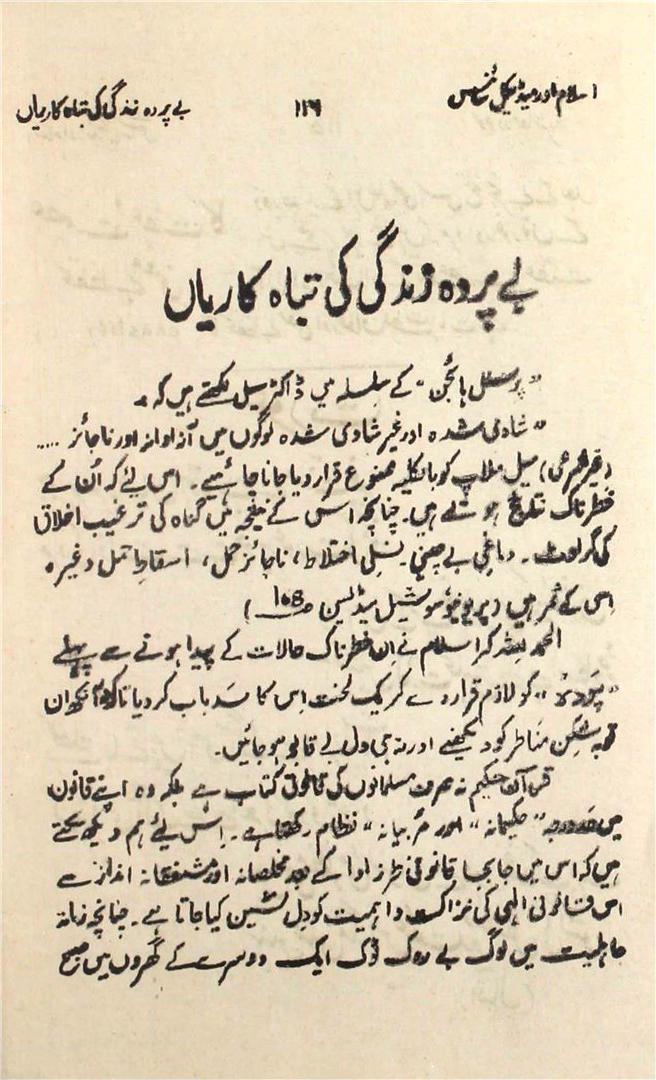 اسلام اور میڈیکل سائنس ۱۱۶ بے پردہ زندگی کی تباہ کاریاں
بے پردہ زندگی کی تباہ کاریاں
"پرسنل ہائجن" کے سلسلہ میں ڈاکٹر سیل لکھتے ہیں کہ۔
"شادی شدہ اور غیر شادی شدہ لوگوں میں آزادانہ اور ناجائز .....
(غیر شرعی) میل ملاپ کو بالکلیہ ممنوع قرار دیا جانا چاہیے۔ اس لئے کہ اُن کے
خطرناک نتائج ہوتے ہیں۔ چنانچہ اس کے نتیجہ میں گناہ کی ترغیب اخلاق
کی گراوٹ۔ دماغی بے چینی۔ نسلی اختلاط، ناجائز حمل، اسقاط حمل وغیرہ
اِس کے ثمر ہیں (پریونٹیو سوشیل میڈیسن صـ 108)
الحمد للہ کہ اسلام نے اِن خطرناک حالات کے پیدا ہونے سے پہلے
"پَردَہ" کو لازم قرار دے کر یک لخت اِس کا سَدباب کر دیا تاکہ آنکھ ان
توبہ شکن مناظر کو دیکھنے اور نہ ہی دل بے قابو ہو جائیں۔
قرآن حکیم نہ صرف مسلمانوں کی قانونی کتاب ہے بلکہ وہ اپنے قانون
میں حَددرجہ "حکیمانہ" اور "مُربیانہ" نظام رکھتا ہے۔ اِس لیے ہم دیکھ سکتے
ہیں کہ اس میں جا بجا قانونی طرز ادا کے بعد مخلصانہ اور مشفقانہ انداز سے
اس قانونی الٰہی کی نزاکت و اہمیت کو دل نشین کیا جاتا ہے۔ چنانچہ زمانۂ
جاہلیت میں لوگ بے روک ٹوک ایک دوسرے کے گھروں میں صبح